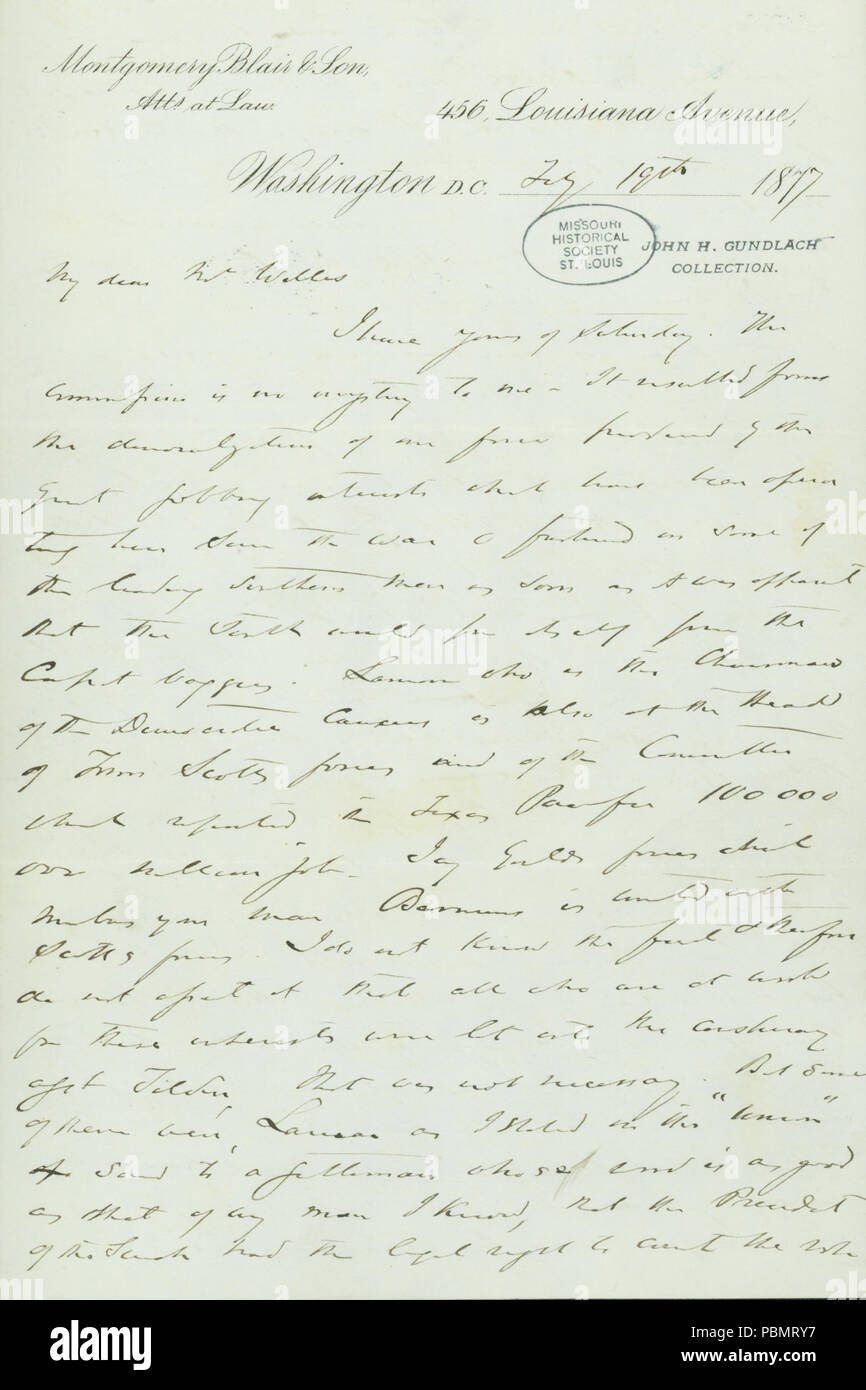 Montgomery Blair & Son,
Atts. at Law.
456, Louisiana Avenue,
Washington D.C. Feby 19th 1877
MISSOURI
HISTORICAL
SOCIETY
ST. LOUIS
JOHN H. GUNDLACH
COLLECTION.
My dear Mr Welles
I have yours of Saturday. The
is no mystery to me - It resulted from
the demoralization of our force produced by the
Great Jobbing interests which have been opera
ting here since the war & fastened on some of
the leading Southern men as soon as it was apparent
that the South would free itself from the
Carpet baggers. Lamar who is the Chairman
of the Democratic Caucus is also at the Head
of Tom Scotts forces and of the Committee
which reported the Texas Pacific 100 000
000 million job - Jay Goulds forces which
your man Barnum is united with
Scotts forces. I do not know the fact & therefore
do not assert it that all who are at work
for these interests were let into the conspiracy
agst Tilden, that was not necessary. But some
of them were, Lamar as I stated in the "Union"
said to a gentleman whose word is as good
as that of any man I know, that the President
of the Senate had the legal right to count the vote
alamy
Image ID: PBMRY7
www.alamy.com